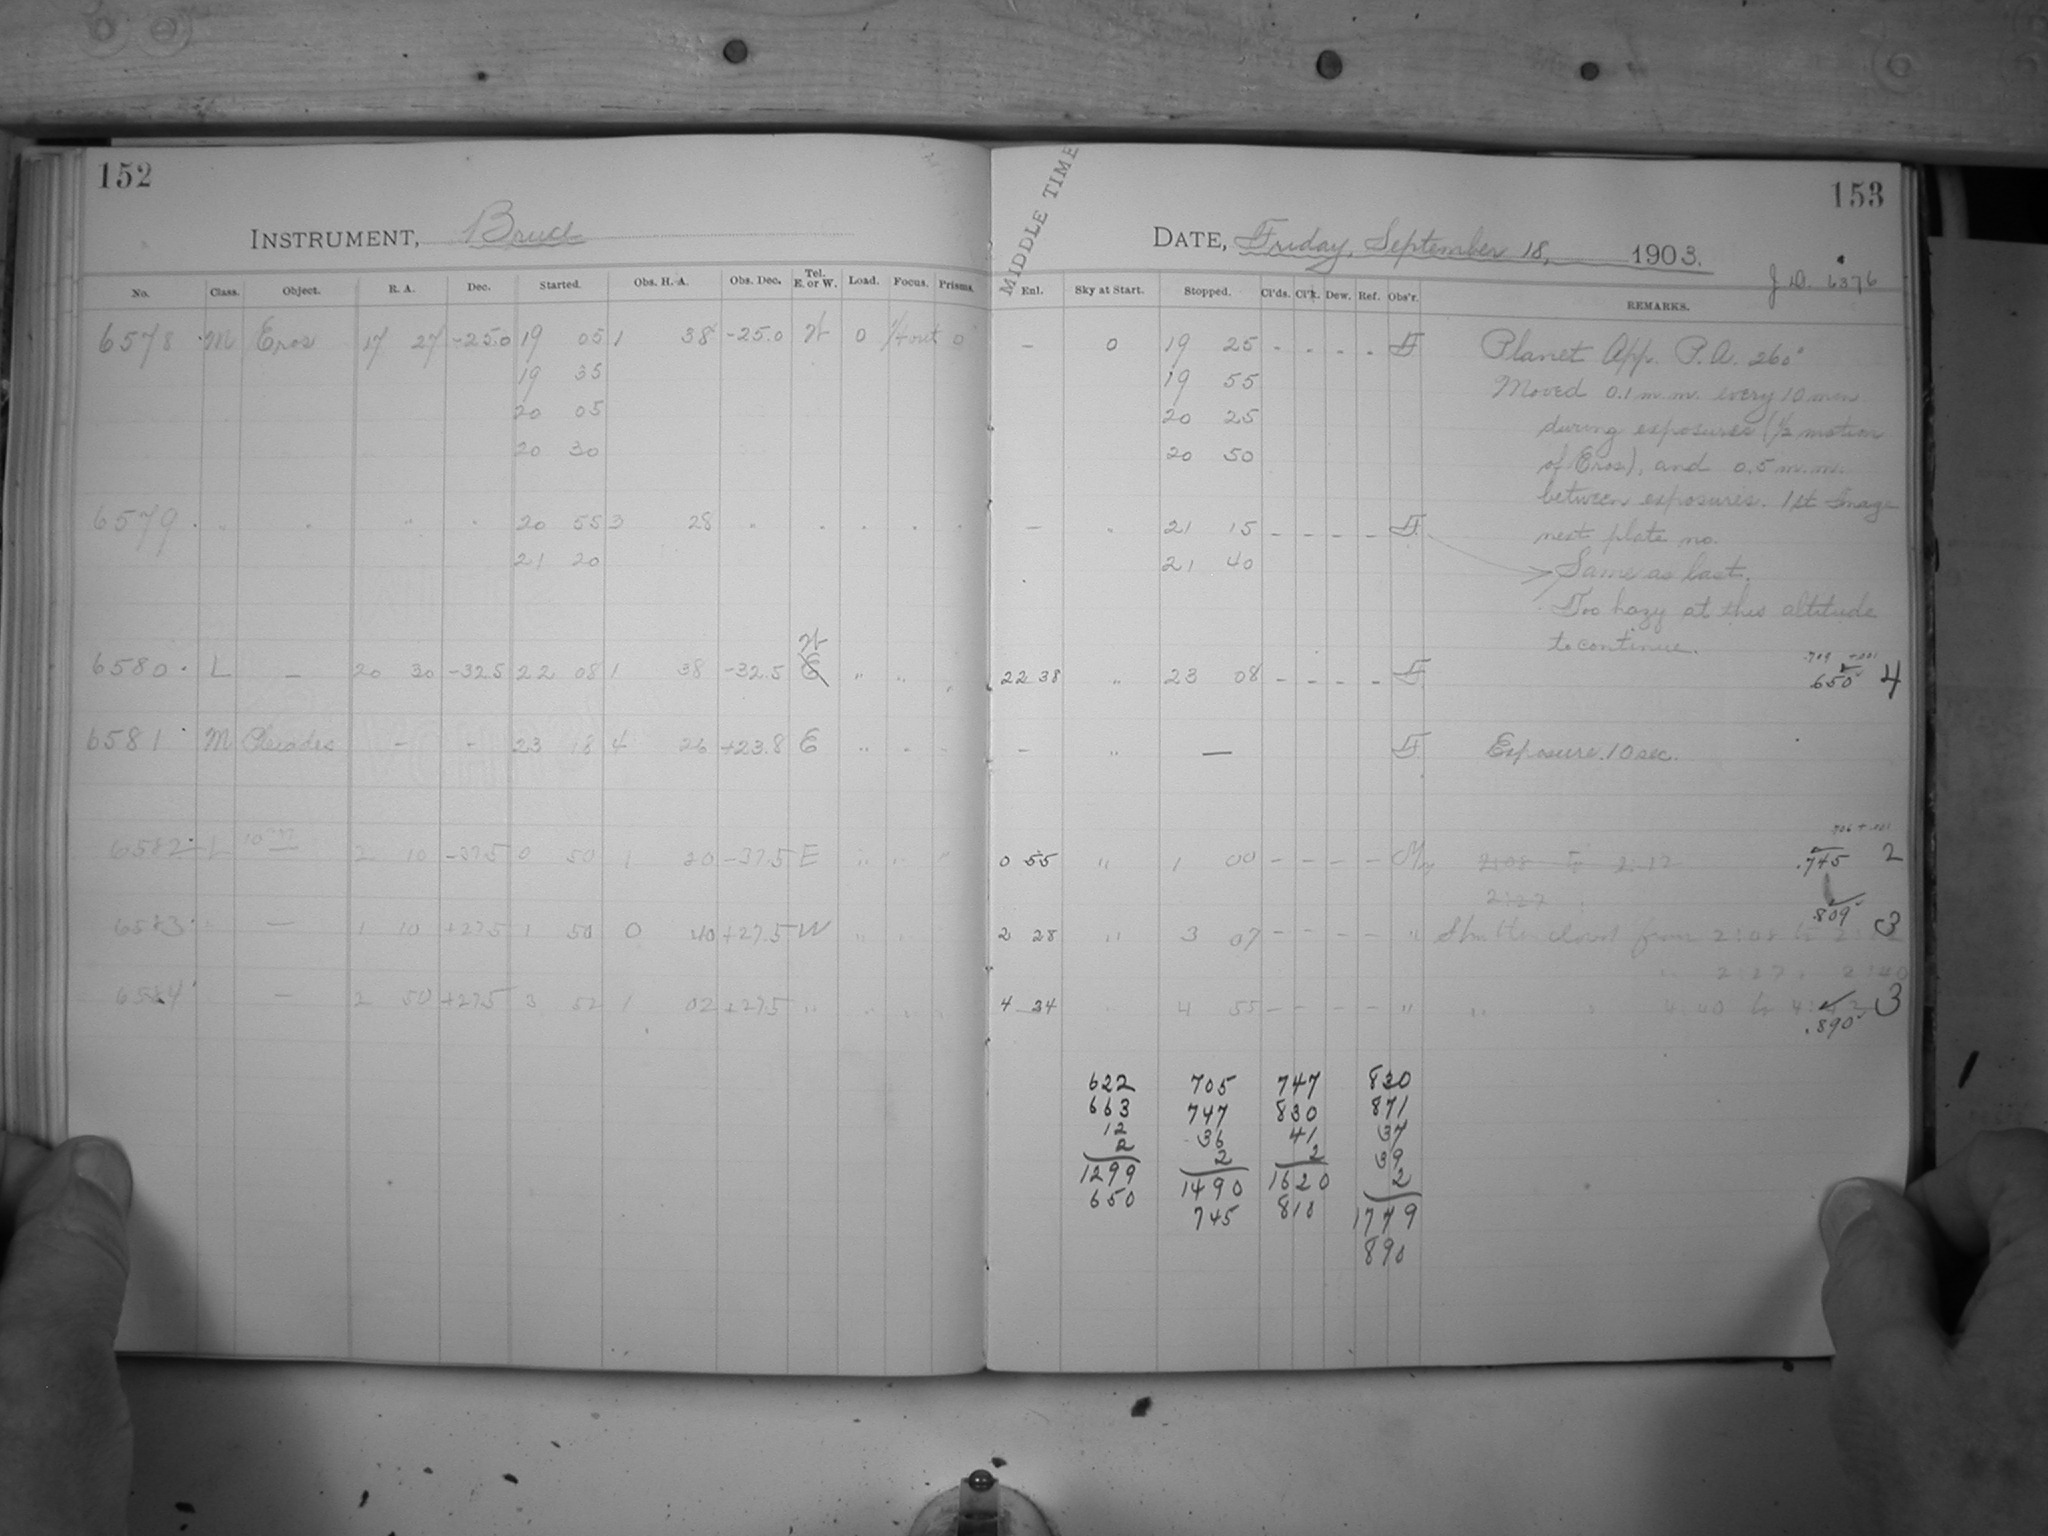 152
INSTRUMENT, Bruce
No. Class. Object. R. A. Dec. Started. Obs. H. A. Obs. Dec. Tel. E. or W. Load. Focus. Prisms.
6578 M Eros 17 27 -25.0 19 05 1 38 -25.0 W 0 1/4 out 0
19 35
20 05
20 30
6579 " " " " 20 55 3 28 " " " " "
21 20
W
6580 L — 20 30 -32.5 22 08 1 38 -32.5 E " " "
6581 M Pleiades - - 23 18 4 26 +23.8 E " " "
6582 L 10m 2 10 -37.5 0 50 1 20 -37.5 E " " "
6583 " — 1 10 +27.5 1 50 0 40 +27.5 W " " "
6584 — 2 50 +27.5 3 52 1 02 +27.5 " " " "
153
MIDDLE TIME
DATE, Friday, September 18, 1903.
J. D. 6376
Enl. Sky at Start. Stopped. Cl'ds. Cl'k. Dew. Ref. Obs'r. REMARKS.
— 0 19 25 - - - - F Planet App. P.A. 260°
19 55 Moved 0.1 m.m. every 10 min
20 25 during exposures (1/2 motion
20 50 of Eros), and 0.5 m.m.
between exposures. 1st Image
— " 21 15 - - - - F. next plate no.
21 40 Same as last.
Too hazy at this altitude
to continue.
22 38 " 23 08 - - - - F. .650 4
— " — F. Exposure 10 sec.
0 55 " 1 00 - - - - 2:08 to 2:12 .745 2
2:27
.809
2 28 " 3 07 - - - - " Shutter closed from 2:08 to 2:12 3
" 2:27 " 2:40
4 34 4 55 - - - - " " " 4:40 to 4:42 3
.890
622 705 747 830
663 747 830 871
12 36 41 37
2 2 2 39
1299 1490 1620 2
650 745 810 1779
890